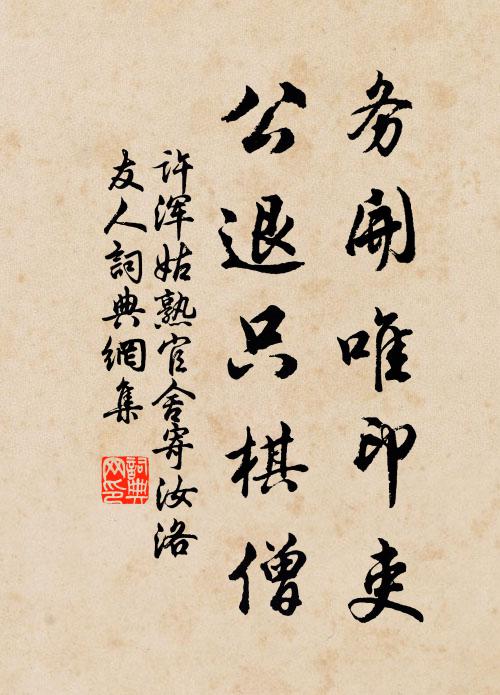 务開唯印吏
公退只棋僧
许浑姑熟官舍寄汝洛
友人詞典網集
詞典
网印